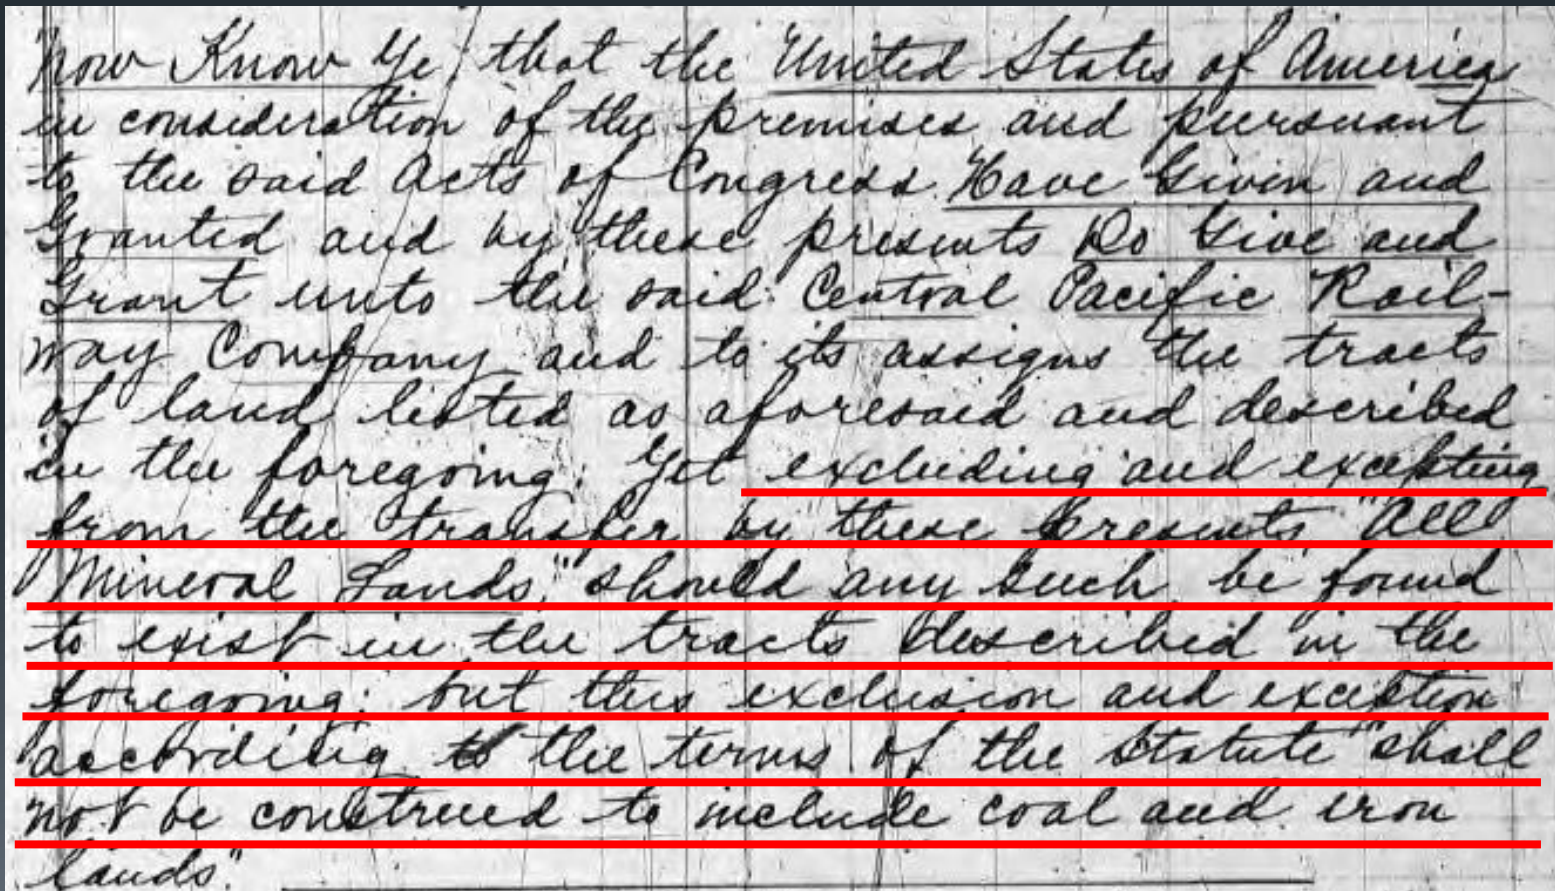 Now Know Ye; that the United States of America
in consideration of the premises and pursuant
to the said Acts of Congress Have Given and
Granted and by these presents Do Give and
Grant unto the said Central Pacific Rail-
way Company and to its assigns the tracts
of land listed as aforesaid and described
in the foregoing; Yet excluding and excepting
from the transfer by these presents "All
Mineral Lands," should any such be found
to exist in the tracts described in the
foregoing; but this exclusion and exception
according to the terms of the Statute "shall
not be construed to include coal and iron
lands".